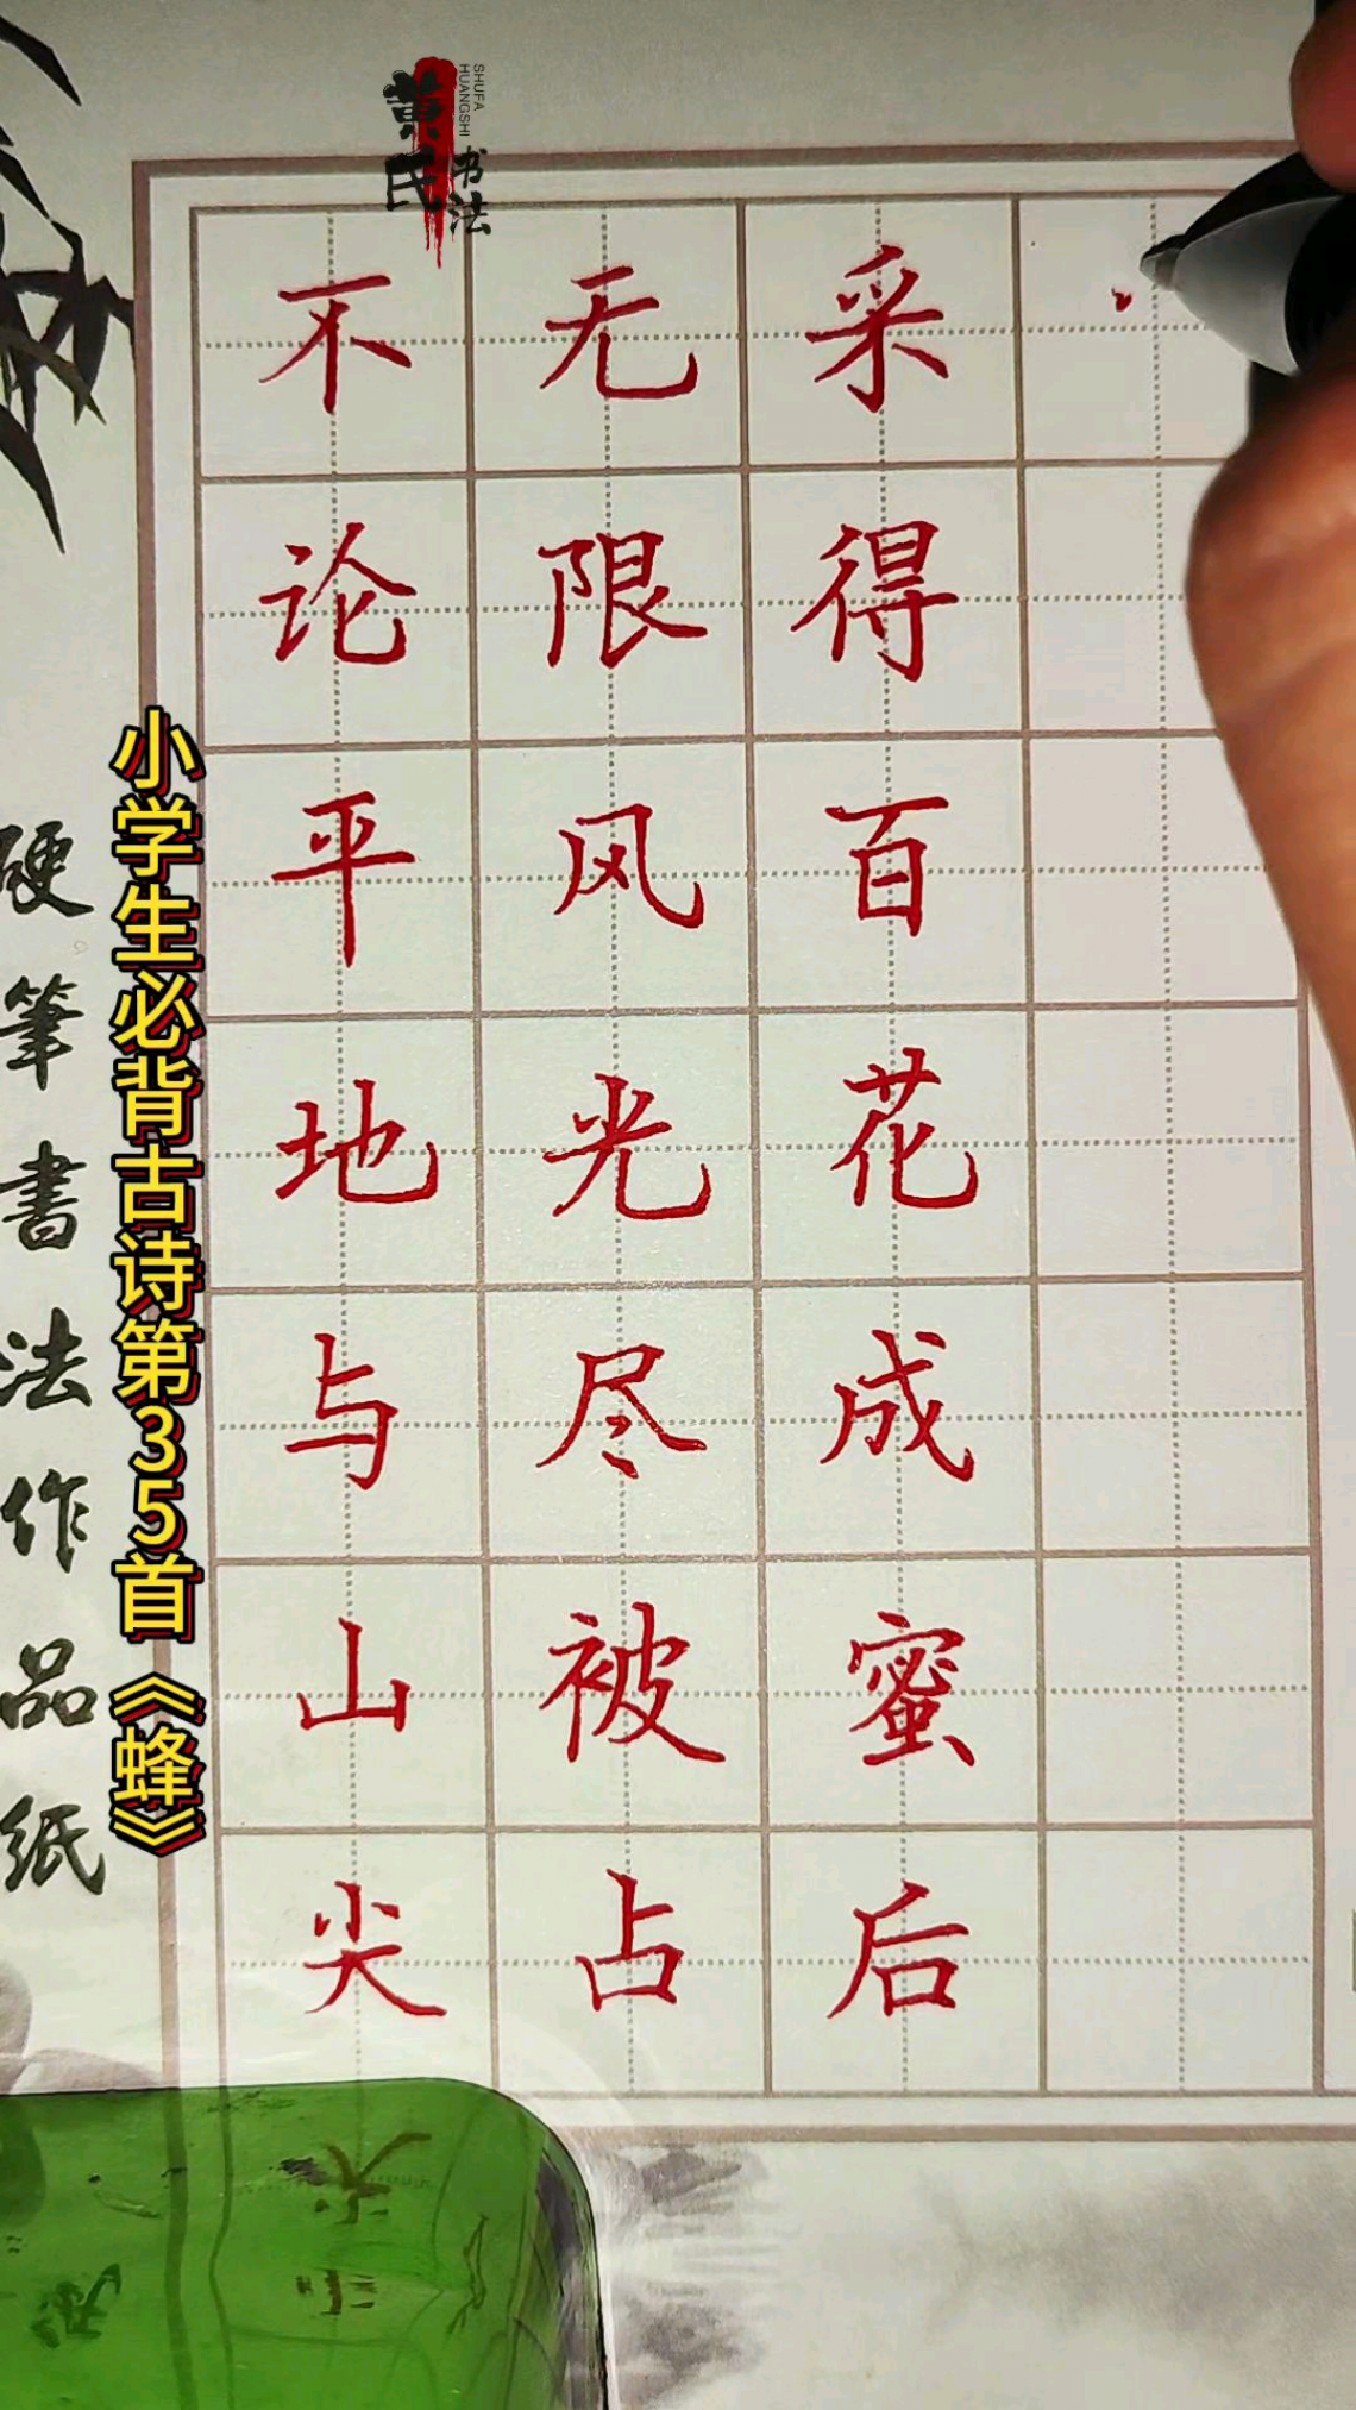 黄氏书法
SHUFA
HUANGSHI
硬筆書法作品紙
小学生必背古诗第35首《蜂》
不论平地与山尖
无限风光尽被占
采得百花成蜜后